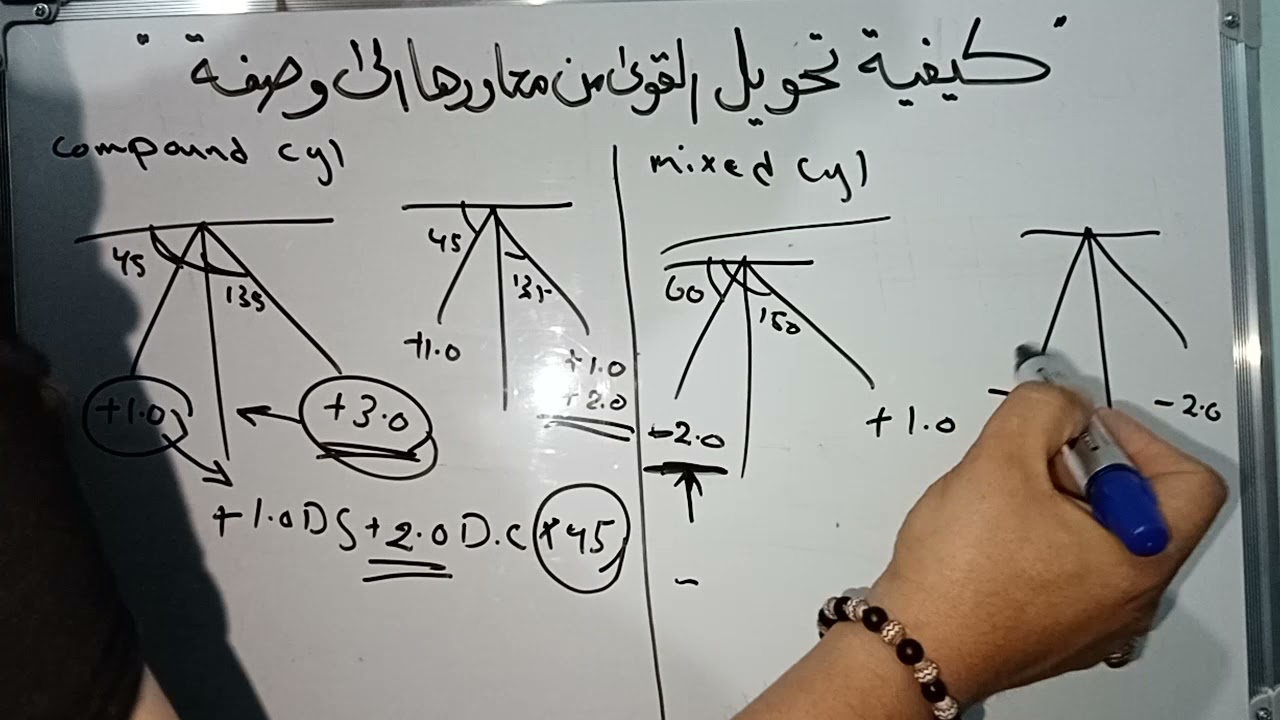 " كيفية تحويل القوى من محاورها الى وصفة "
compound cyl
45
135
+1.0
+3.0
+1.0 DS +2.0 D.C × 45
45
135
+1.0
+1.0
+2.0
mixed cyl
60
150
-2.0
+1.0
-
-
-2.0